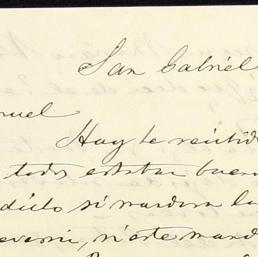 San Gabriel
nuel
Hay te recibido
todos estaban buen
dicto si mandera la
everria, ni este mand